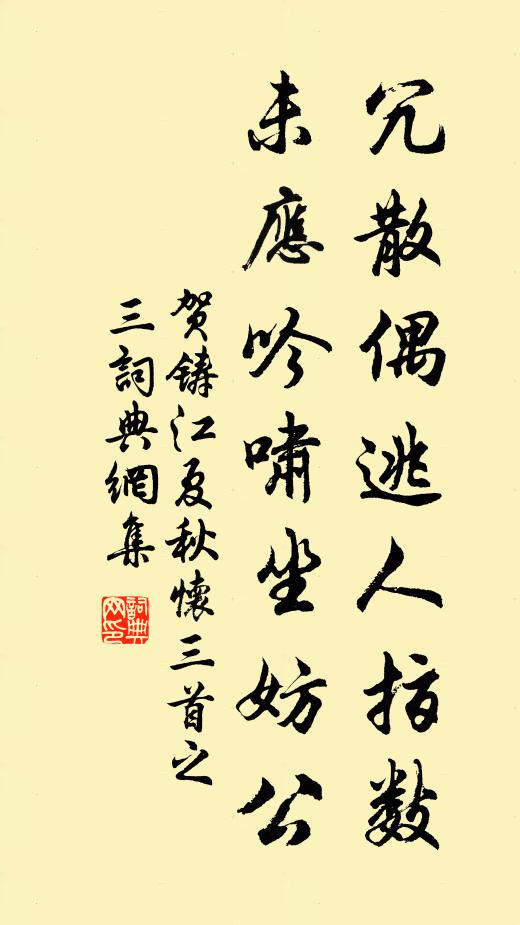 冗散偶逃人指数
未應吟嘯坐妨公
贺鑄江夏秋懷三首之
三詞典網集
詞典
网印